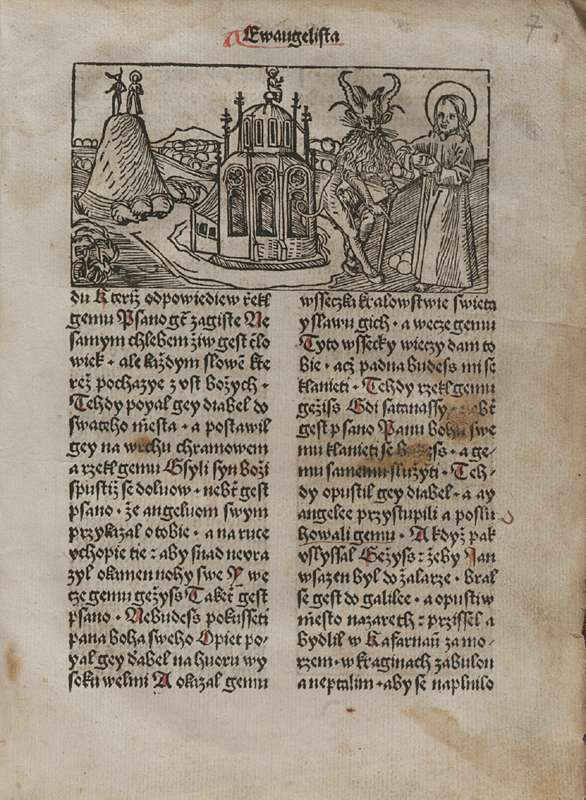 Ewangelista
7
du Kteriž odpowiediew řekl
gemu Psano gt̃ zagiste Ne
samym chlebem žiw gest čło
wiek · ale každym slowē kte
rež pochazye z vst božych ·
Tehdy poyal gey diabel do
swateho mesta · a postawil
gey na wrchu chramowem
a rzekl gemu Gsyli syn boži
spustiž se doluow · nebř gest
psano · že angeluom swym
przykazal o tobie · a na ruce
vchopie tie : aby snad nevra
zyl o kamen nohy swe Y we
cze gemu gežyss Takeř gest
psano · Nebudess pokusseti
pana boha sweho Opiet po⸗
yal gey ďabel na huoru wy
soku welmi A okazal gemu
wsseczki kralowstwie swieta
y slawu gich · a wecze gemu
Tyto wssecky wieczy dam to
bie · acž padna budess mi se
klanieti · Tehdy rzekl gemu
gežiss Gdi satanassy nebř
gest psano Panu bohu swe
mu klanieti se budess · a ge⸗
mu samemu služyti · Teh⸗
dy opustil gey diabel · a ay
angelee przystupili a poslu
howali gemu · A když pak
vslyssal Gežyss : žeby Jan
wsazen byl do žalarze · bral
se gest do galilee · a opustiw
mesto nazareth : przissel a
bydlil w Kafarnaū za mo⸗
rzem · w kraginach zabulon
a neptalim · aby se naplnilo